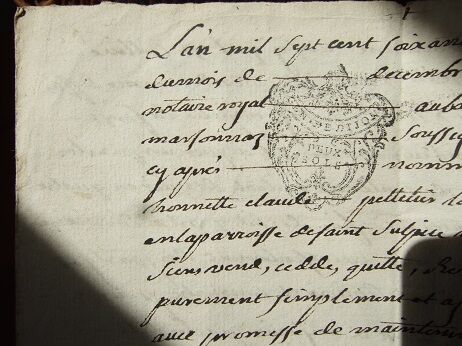 L'an mil sept cent soixan
du mois de decembr
notaire royal au ba
marsonnaz soussig
cy après nomm
honnette claude pelletier la
en la parroisse de saint Sulpice
vend, cedde, quitte,
purement simplement et a
avec promesse de mainteni
DEUX
SOLS